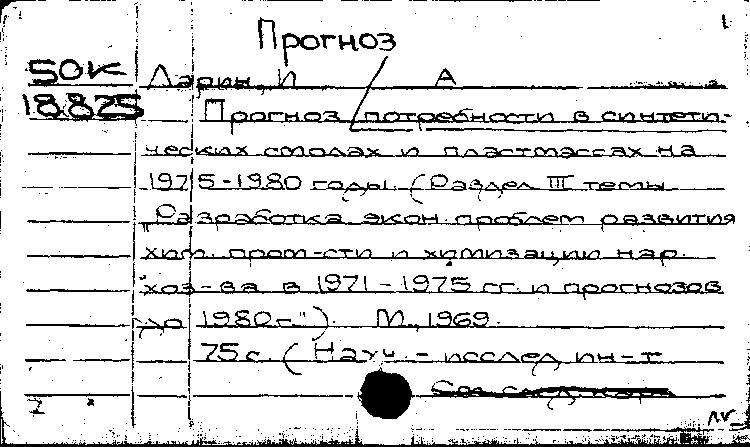 Прогноз
50к Ларин, И А
18825 Прогноз потребности в синтети-
ческих смолах и пластмассах на
1975-1980 годы. (Раздел III темы
"Разработка экон. проблем развития
хим. пром-сти и химизации нар.
хоз-ва в 1971-1975 гг. и прогнозов
до 1980 г."). М., 1969.
75 с. (Науч.-исслед. ин-т